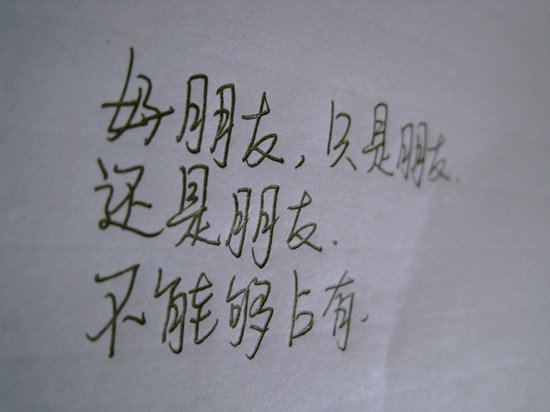 好朋友,只是朋友.
还是朋友.
不能够占有.